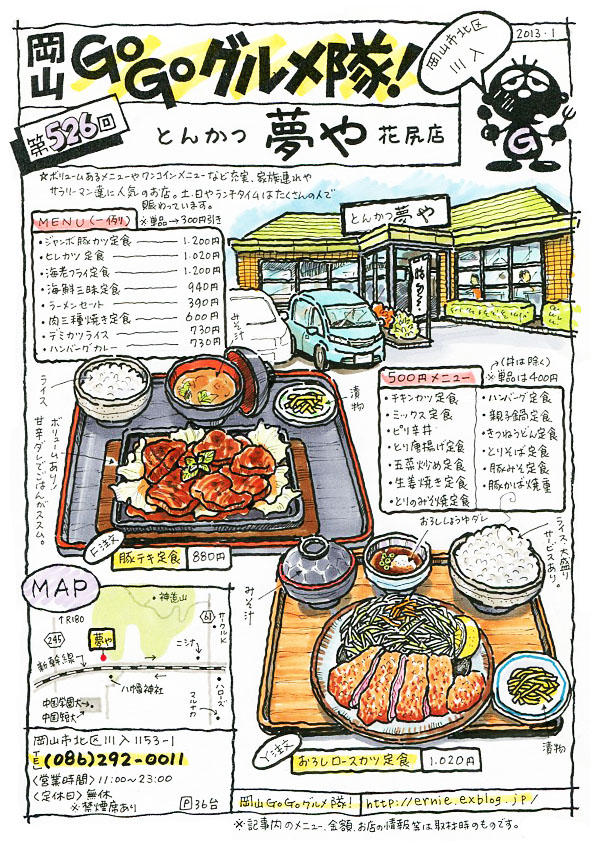 岡山 GoGoグルメ隊!
岡山市北区
川入
2013・1
第526回
とんかつ 夢や 花尻店
☆ボリュームあるメニューやワンコインメニューなど充実、家族連れや
サラリーマン達に人気のお店。土、日やランチタイムはたくさんの人で
賑わっています。
MENU(一例) ※単品→300円引き
・ジャンボ豚カツ定食 1.200円
・ヒレカツ定食 1.020円
・海老フライ定食 1.200円
・海鮮三昧定食 940円
・ラーメンセット 390円
・肉三種焼き定食 600円
・デミカツライス 730円
・ハンバーグカレー 730円
とんかつ 夢や
500円メニュー
(丼は除く)
※単品は400円
・チキンカツ定食
・ミックス定食
・ピリ辛丼
・とり唐揚げ定食
・五菜炒め定食
・生姜焼き定食
・とりのみそ焼定食
・ハンバーグ定食
・親子鍋定食
・きつねうどん定食
・とりそば定食
・豚みそ定食
・豚かば焼重
ライス
みそ汁
漬物
ボリュームあり!
甘辛ダレでごはんがススム。
F注文
豚テキ定食 880円
おろししょうゆダレ
みそ汁
ライス、大盛り
サービスあり。
漬物
Y注文
おろしロースカツ定食 1.020円
MAP
・神道山
↑R180
61
サークルK
245
夢や
ニシナ
新幹線
八幡神社
ハローズ
マルナカ
中国学園大
中国短大
岡山市北区川入1153-1
TEL(086)292-0011
〈営業時間〉11:00〜23:00
〈定休日〉無休
※禁煙席あり
P36台
岡山GoGoグルメ隊! http://ernie.exblog.jp/
※記事内のメニュー、金額、お店の情報等は取材時のものです。